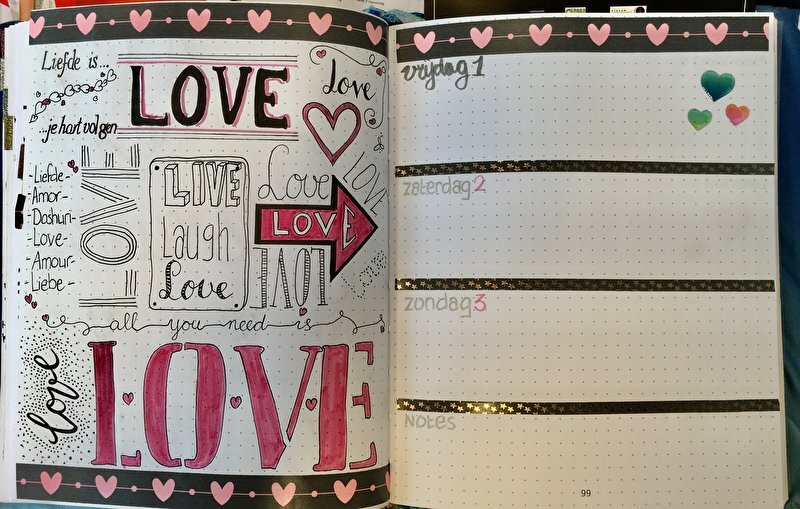 Liefde is...
...je hart volgen
LOVE
Love
-Liefde-
-Amor-
-Dashuri-
-Love-
-Amour-
-Liebe-
LOVE
LIVE
Laugh
Love
Love
LOVE
LOVE
LOVE
all you need is
LOVE
love
vrijdag 1
zaterdag 2
zondag 3
Notes
99